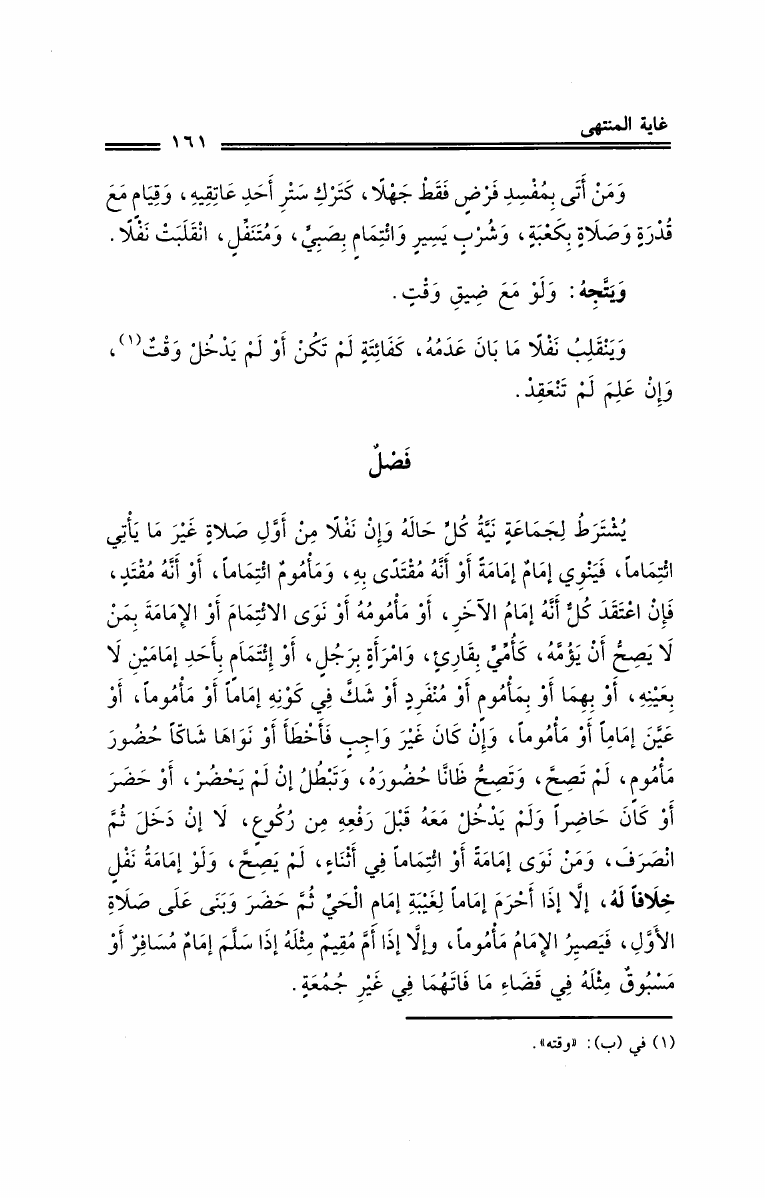 غاية المنتهى
١٦١
وَمَنْ أَتَى بِمُفْسِدِ فَرْضٍ فَقَطْ جَهْلًا، كَتَرْكِ سَتْرِ أَحَدِ عَاتِقِيهِ، وَقِيَامٍ مَعَ
قُدْرَةٍ وَصَلَاةٍ بِكَعْبَةٍ، وَشُرْبٍ يَسِيرٍ وَائْتِمَامٍ بِصَبِيٍّ، وَمُتَنَفِّلٍ، انْقَلَبَتْ نَفْلًا.
وَيَتَّجِهُ: وَلَوْ مَعَ ضِيقِ وَقْتٍ.
وَيَنْقَلِبُ نَفْلًا مَا بَانَ عَدَمُهُ، كَفَائِتَةٍ لَمْ تَكُنْ أَوْ لَمْ يَدْخُلْ وَقْتٌ(١)،
وَإِنْ عَلِمَ لَمْ تَنْعَقِدْ.
فَصْلٌ
يُشْتَرَطُ لِجَمَاعَةٍ نَيَّةُ كُلٍّ حَالَهُ وَإِنْ نَفْلًا مِنْ أَوَّلِ صَلاةٍ غَيْرَ مَا يَأْتِي
ائْتِمَاماً، فَيَنْوِي إمَامٌ إمَامَةً أَوْ أَنَّهُ مُقْتَدًى بِهِ، وَمَأْمُومٌ ائْتِماماً، أَوْ أَنَّهُ مُقْتَدٍ،
فَإِنْ اعْتَقَدَ كُلٌّ أَنَّهُ إمَامُ الآخَرِ، أَوْ مَأْمُومُهُ أَوْ نَوَى الائْتِمَامَ أَوْ الإِمَامَةَ بِمَنْ
لَا يَصِحُّ أَنْ يَؤُمَّهُ، كَأُمِّيٍّ بِقَارِئٍ، وَامْرَأَةٍ بِرَجُلٍ، أَوْ إِئْتَمَاَمٍ بِأَحَدِ إمَامَيْنِ لَا
بِعَيْنِهِ، أَوْ بِهِمَا أَوْ بِمَأْمُومٍ أَوْ مُنْفَرِدٍ أَوْ شَكَّ فِي كَوْنِهِ إمَاماً أَوْ مَأْمُوماً، أَوْ
عَيَّنَ إمَامِاً أَوْ مَأْمُوماً، وَإِنْ كَانَ غَيْرَ وَاجِبٍ فَأَخْطَأَ أَوْ نَوَاهَا شَاكّاً حُضُورَ
مَأْمُومٍ، لَمْ تَصِحَّ، وَتَصِحُّ ظَانًّا حُضُورَهُ، وَتَبْطُلُ إنْ لَمْ يَحْضُرْ، أَوْ حَضَرَ
أَوْ كَانَ حَاضِراً وَلَمْ يَدْخُلْ مَعَهُ قَبْلَ رَفْعِهِ مِن رُكُوعٍ، لَا إنْ دَخَلَ ثُمَّ
انْصَرَفَ، وَمَنْ نَوَى إمَامَةً أَوْ ائْتِمَاماً فِي أَثْنَاءٍ، لَمْ يَصِحَّ، وَلَوْ إمَامَةُ نَفْلٍ
خِلَافاً لَهُ، إلَّا إذَا أَحْرَمَ إمَاماً لِغَيْبَةِ إمَامِ الْحَيِّ ثُمَّ حَضَرَ وَبَنَى عَلَى صَلَاةِ
الأَوَّلِ، فَيَصِيرُ الإِمَامُ مَأْمُوماً، وإلَّا إذَا أَمَّ مُقِيمٌ مِثْلَهُ إذَا سَلَّمَ إمَامٌ مُسَافِرٌ أَوْ
مَسْبُوقٌ مِثْلَهُ فِي قَضَاءِ مَا فَاتَهُمَا فِي غَيْرِ جُمُعَةٍ.
(١) في (ب): «وقته».